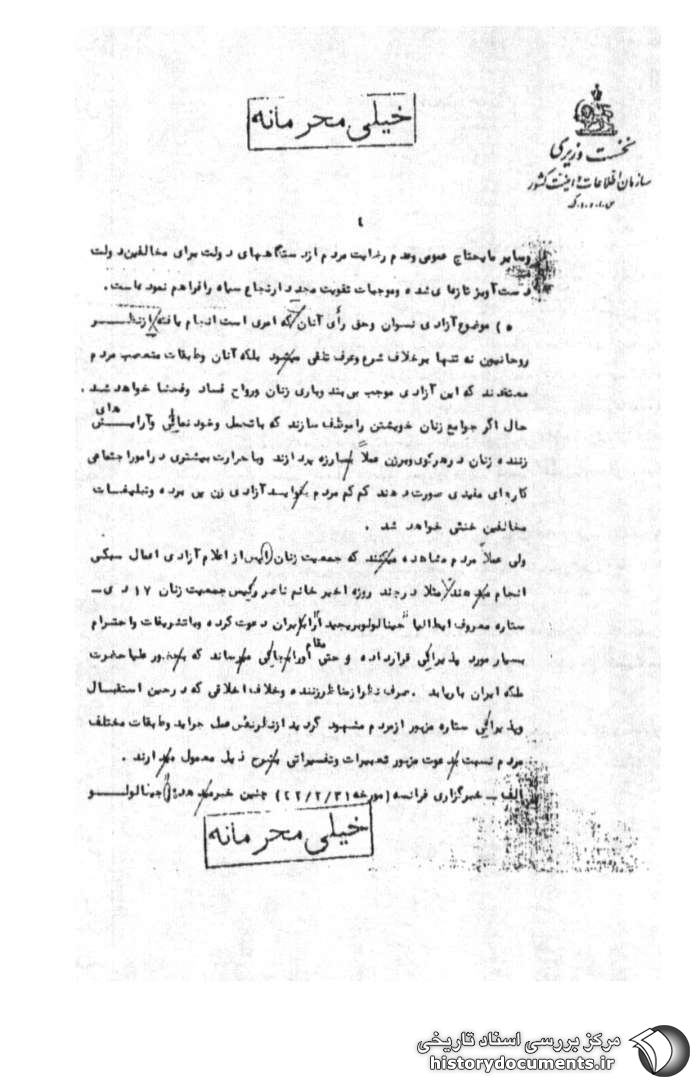 خیلی محرمانه
نخست وزیری
سازمان اطلاعات و امنیت کشور
س.ا.و.ا.ک
٤
وسایر مایحتاج عمومی وعدم رضایت مردم ازدستگاههای دولت برای مخالفین دولت
دست آویز تازه‌ای شده وموجبات تقویت مجدد ارتجاع سیاه رافراهم نموده است.
٥) موضوع آزادی نسوان وحق رأی آنان که امری است انجام یافته ازنظر
روحانیون نه تنها برخلاف شرع وعرف تلقی میشود بلکه آنان وطبقات متعصب مردم
معتقدند که این آزادی موجب بی بند وباری زنان ورواج فساد وفحشا خواهد شد.
حال اگر جوامع زنان خویشتن راموظف سازند که باتجمل وخود نمائی وآرایش های
زننده زنان در هرکوی وبرزن عملاً مبارزه پردازند وباحرارت بیشتری درامور اجتماعی
کارهای مفیدی صورت دهند کم کم مردم بفواید آزادی زن پی برده وتبلیغات
مخالفین خنثی خواهد شد.
ولی عملاً مردم مشاهده میکنند که جمعیت زنان پس از اعلام آزادی اعمال سبکی
انجام میدهند مثلا درچند روزه اخیر خانم ناصر رئیس جمعیت زنان ١٧ دی ـ
ستاره معروف ایطالیا "جینالولوبریجیدا" رابایران دعوت کرده وباتشریفات واحترام
بسیار مورد پذیرائی قرارداده و حتی مقام اورا بجائی میرساند که بحضور علیاحضرت
ملکه ایران باریابد. صرف نظر ازمناظر زننده وخلاف اخلاقی که درحین استقبال
وپذیرائی ستاره مزبور ازمردم مشهود گردید ازنظر نفس عمل جراید وطبقات مختلف
مردم نسبت بدعوت مزبور تعبیرات وتفسیراتی بشرح ذیل معمول میدارند.
الف ـ خبرگزاری فرانسه (مورخه ٤٢/٢/٣١) چنین خبر میدهد: "جینالولو
خیلی محرمانه
مرکز بررسی اسناد تاریخی
historydocuments.ir